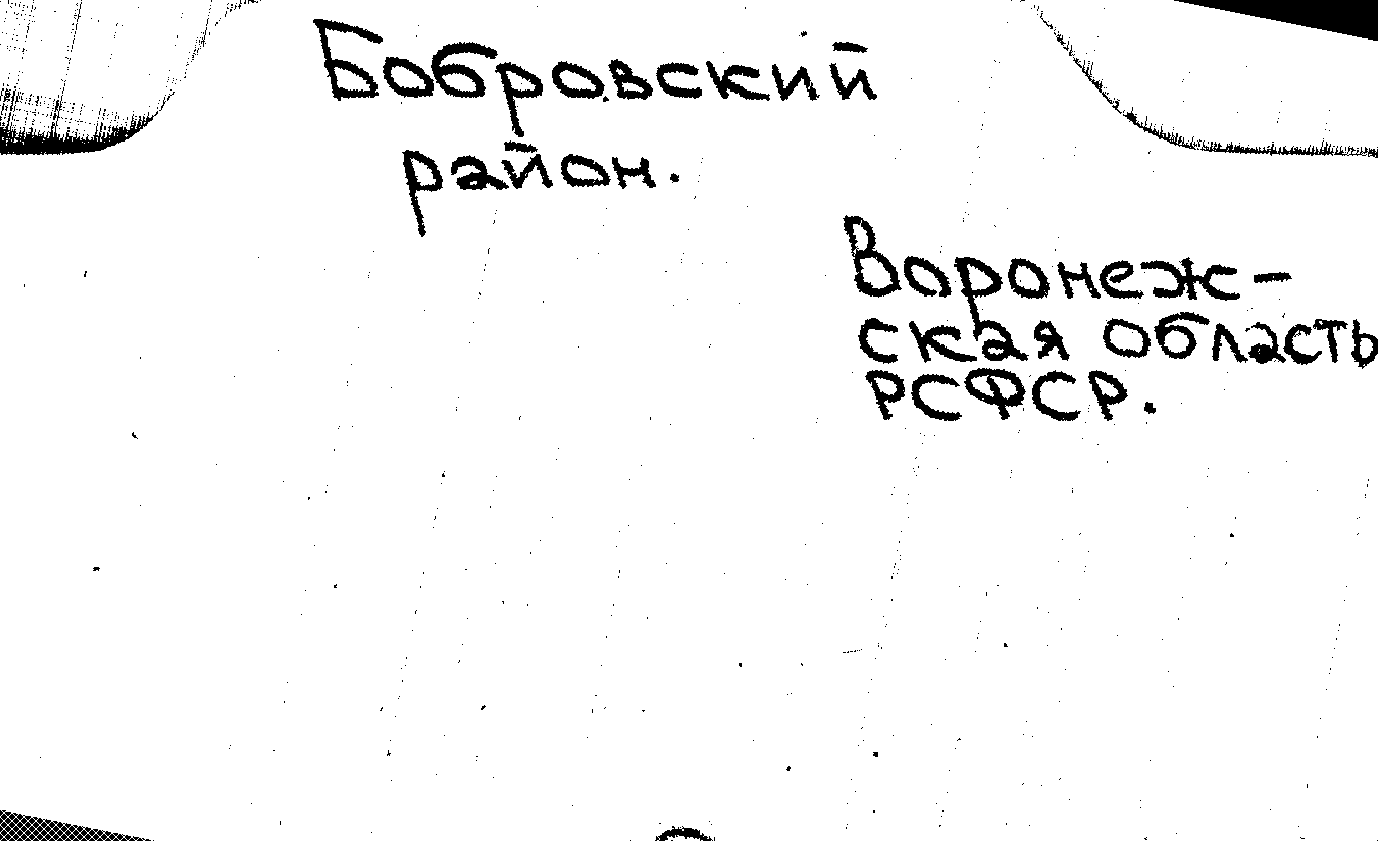 Бобровский
район.
Воронеж-
ская область
РСФСР.